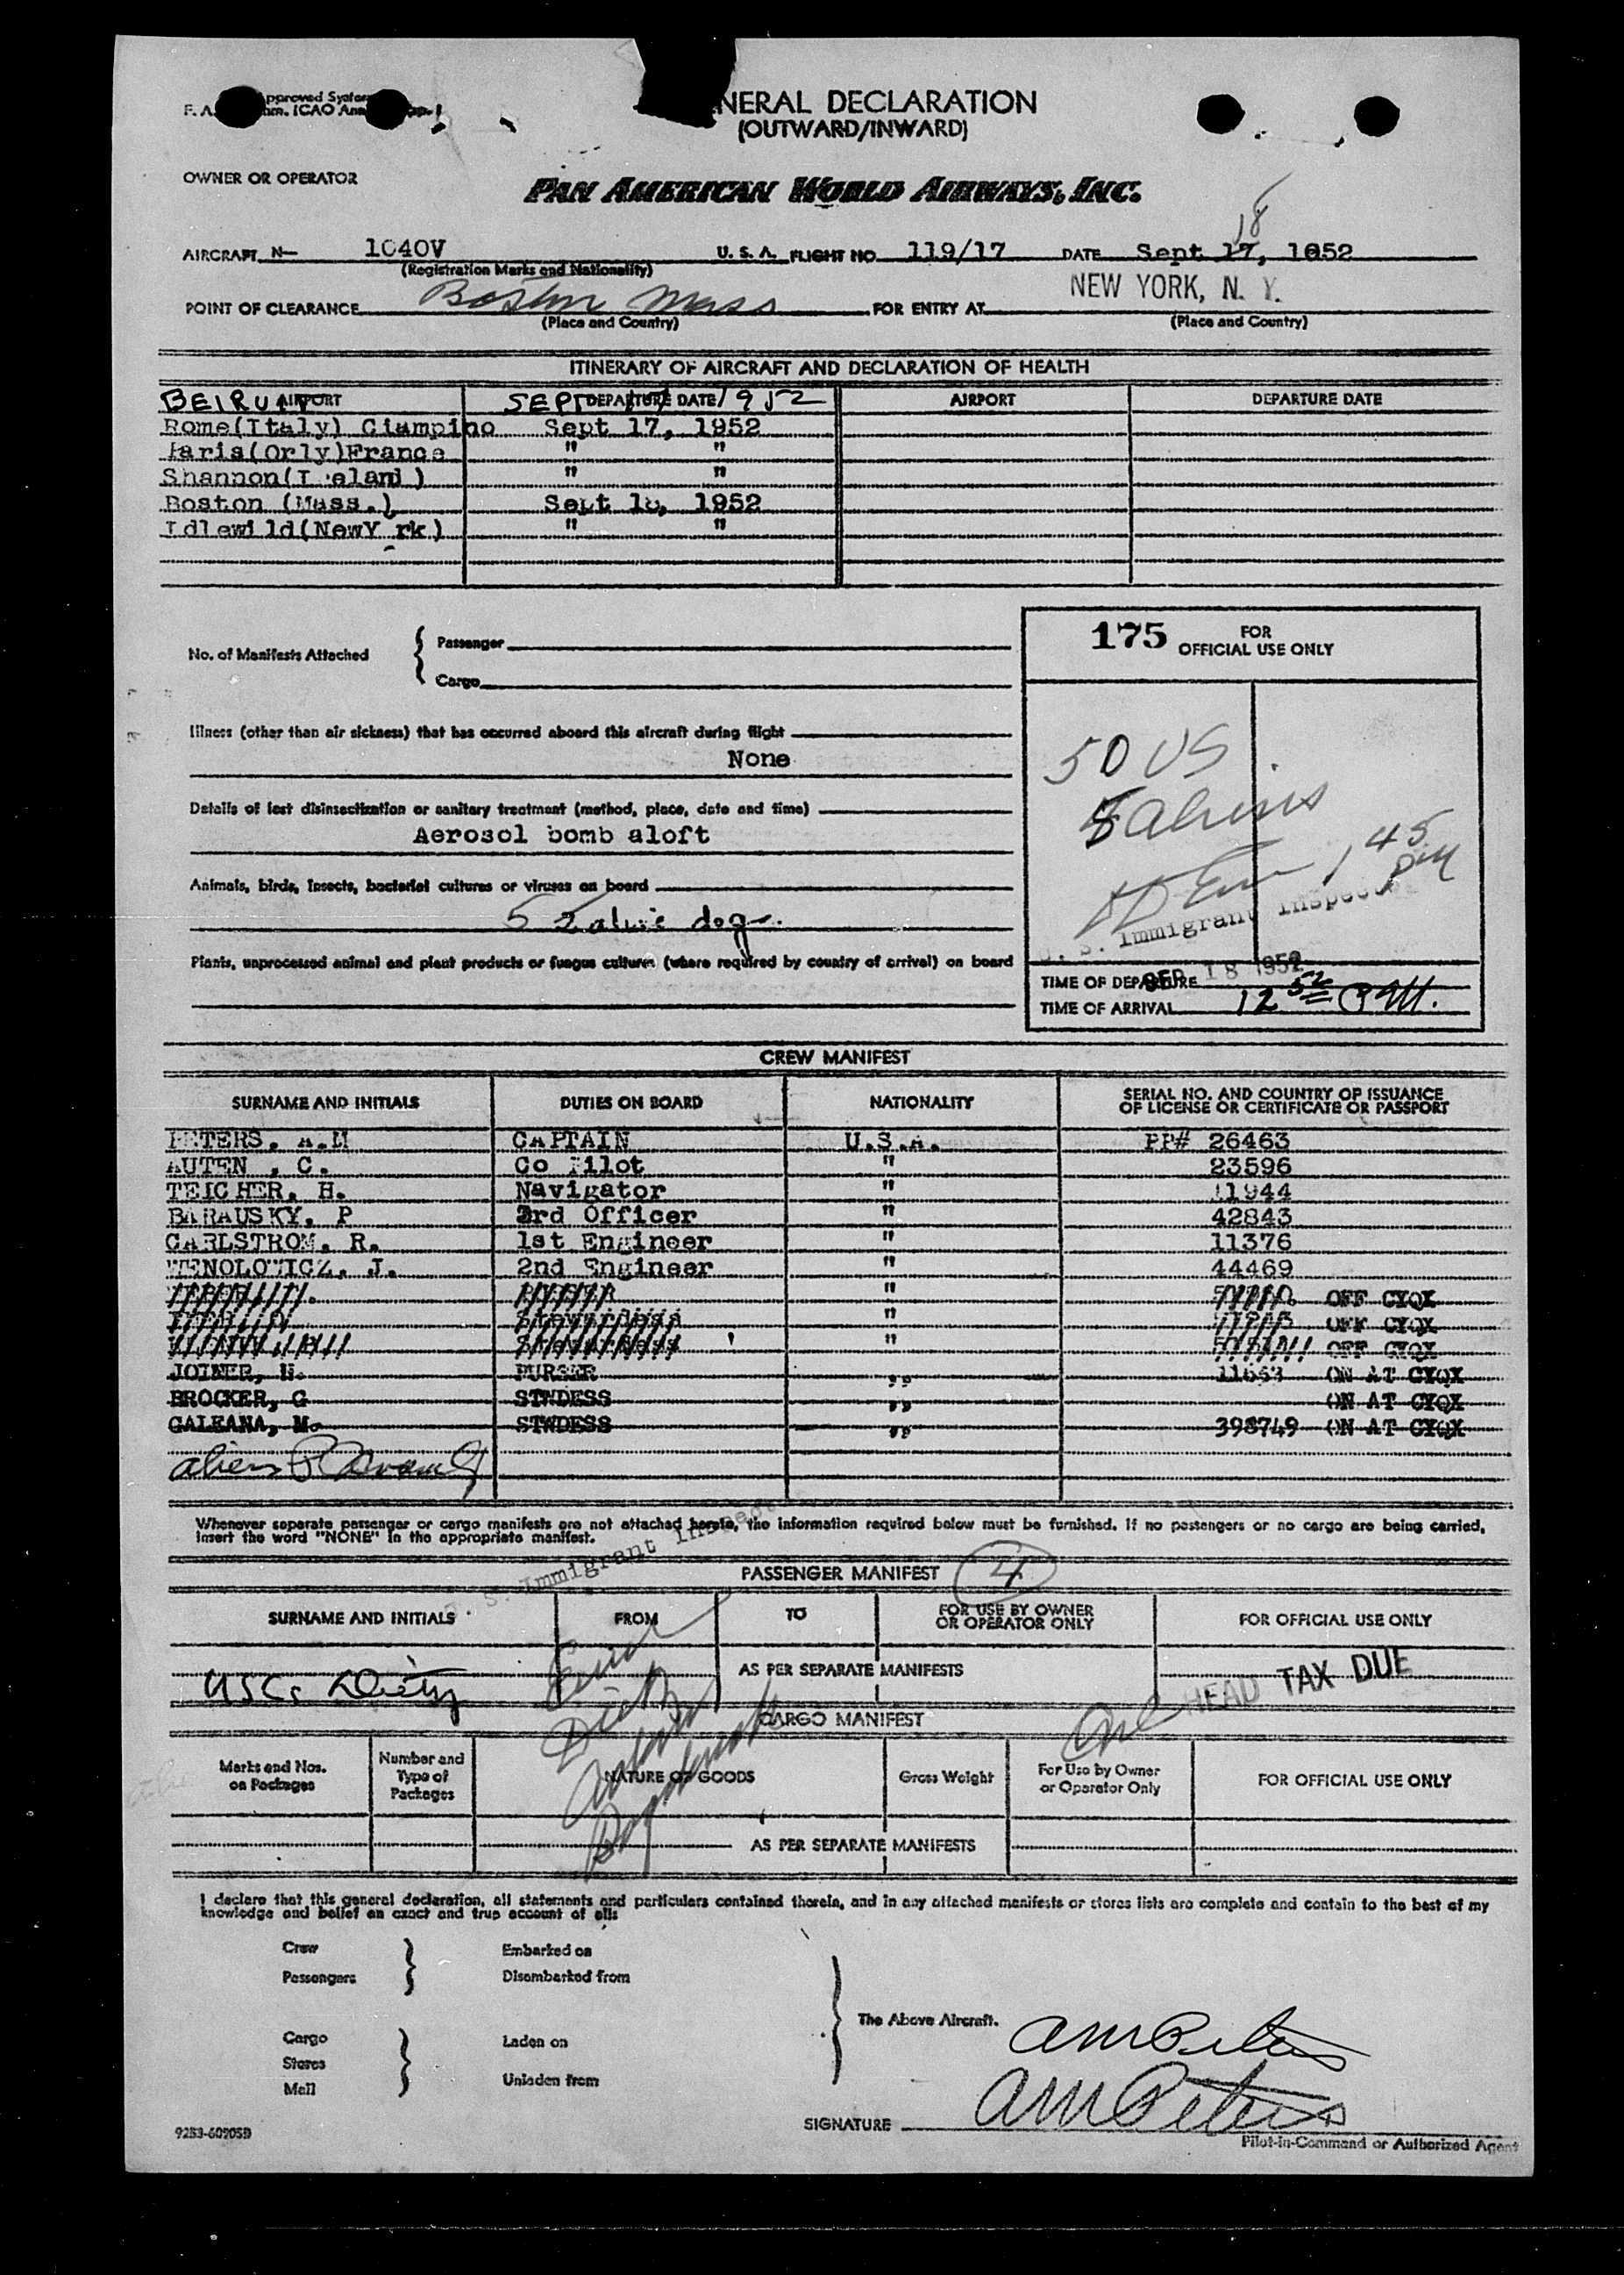 F. A.
pproved System
ICAO Ann
NERAL DECLARATION
(OUTWARD/INWARD)
OWNER OR OPERATOR
PAN AMERICAN WORLD AIRWAYS, INC.
18
AIRCRAFT N- 1040V U. S. A. FLIGHT NO. 119/17 DATE Sept 17, 1952
(Registration Marks and Nationality)
NEW YORK, N. Y.
POINT OF CLEARANCE Boston Mass FOR ENTRY AT
(Place and Country) (Place and Country)
ITINERARY OF AIRCRAFT AND DECLARATION OF HEALTH
AIRPORT DEPARTURE DATE AIRPORT DEPARTURE DATE
BEIRUT SEPT 1952
Rome(Italy) Ciampino Sept 17, 1952
Paris(Orly)France " "
Shannon(I eland) " "
Boston (Mass.) Sept 18, 1952
Idlewild(NewY rk) " "
175 FOR
OFFICIAL USE ONLY
No. of Manifests Attached { Passenger
Cargo
Illness (other than air sickness) that has occurred aboard this aircraft during flight
None
50 US
Details of last disinsectization or sanitary treatment (method, place, date and time)
Aerosol bomb aloft
aliens
1 45 PM
Animals, birds, insects, bacterial cultures or viruses on board
dog
S. Immigrant Inspector
Plants, unprocessed animal and plant products or fungus cultures (where required by country of arrival) on board
TIME OF DEPARTURE SEP 18 1952
TIME OF ARRIVAL 12 52 PM.
CREW MANIFEST
SURNAME AND INITIALS DUTIES ON BOARD NATIONALITY SERIAL NO. AND COUNTRY OF ISSUANCE
OF LICENSE OR CERTIFICATE OR PASSPORT
PETERS, A.M CAPTAIN U.S.A. PP# 26463
AUTEN , C. Co Pilot " 23596
TEICHER, H. Navigator " 11944
BARAUSKY, P 3rd Officer " 42843
CARLSTROM, R. 1st Engineer " 11376
WENOLOWICZ, J. 2nd Engineer " 44469
" OFF CYQX
Stewardess " OFF CYQX
Stewardess " OFF CYQX
JOINER, PURSER " ON AT CYQX
BROCKER, G STWDESS " ON AT CYQX
GALEANA, M. STWDESS " 398749 ON AT CYQX
aliens
Whenever separate passenger or cargo manifests are not attached hereto, the information required below must be furnished. If no passengers or no cargo are being carried,
insert the word "NONE" in the appropriate manifest.
S. Immigrant Inspector
PASSENGER MANIFEST 4
SURNAME AND INITIALS FROM TO FOR USE BY OWNER
OR OPERATOR ONLY FOR OFFICIAL USE ONLY
AS PER SEPARATE MANIFESTS
USCs
HEAD TAX DUE
CARGO MANIFEST
Marks and Nos.
on Packages Number and
Type of
Packages NATURE OF GOODS Gross Weight For Use by Owner
or Operator Only FOR OFFICIAL USE ONLY
AS PER SEPARATE MANIFESTS
I declare that this general declaration, all statements and particulars contained therein, and in any attached manifests or stores lists are complete and contain to the best of my
knowledge and belief an exact and true account of all:
Crew
Passengers } Embarked on
Disembarked from
The Above Aircraft.
Cargo
Stores
Mail } Laden on
Unladen from
AM Peters
SIGNATURE AM Peters
Pilot-in-Command or Authorized Agent